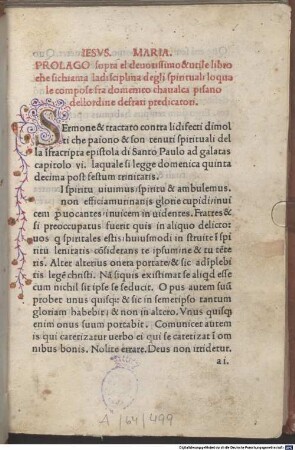 IESVS. MARIA.
PROLAGO sopra el deuotissimo & utile libro
che sichiama ladisciplina degli spirituali loqua
le compose fra domenico chaualca pisano
dellordine defrati predicatori.
SErmone & tractato contra lidifecti dimol
ti che paiono & son tenuti spirituali del
la istracripta epistola di Santo Paulo ad galatas
capitolo vi. laquale si legge domenica quinta
decima post festum trinitatis.
I spiritu uiuimus spiritu & ambulemus.
non efficiamurinanis glorie cupidi inui
cem puocantes inuicem in uidentes. Fratres &
si preoccupatus fuerit quis in aliquo delicto:
uos q spirituales estis huiusmodi in struite ī spiri
tu lenitatis cōsiderans te ipsume & tu tēte
ris. Alter alterius onera portate & sic adiplebi
tis legē christi. Nā siquis existimat se aliqd esse
cum nichil sit ipse se seducit. O pus autem suū
prober unus quisqʒ & sic in semetipso tantum
gloriam habebit; & non in altero. Vnus quisqʒ
enim onus suum portabit. Comunicet autem
is qui catetizatur uerbo ei qui se catetizat ī om
nibus bonis. Nolite errare. Deus non irridetur.
a i.
A/64/499